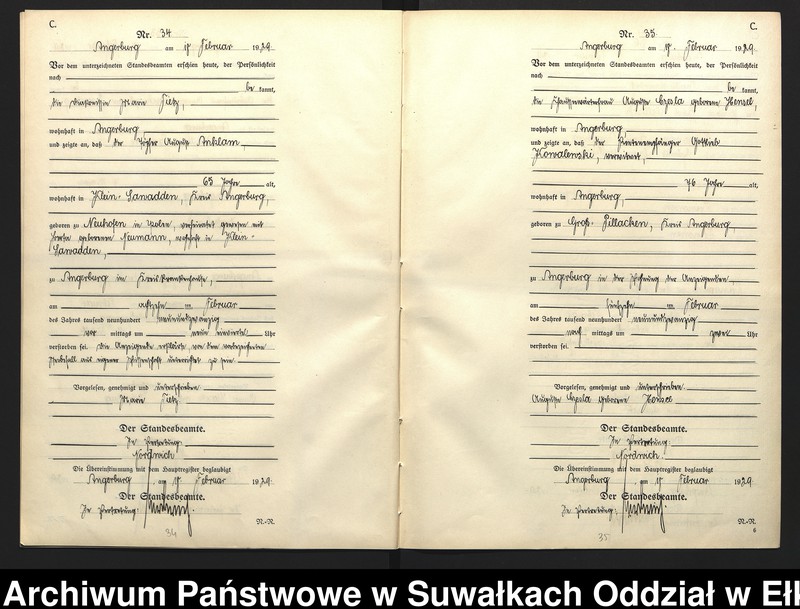 C.
Nr. 34
Angerburg am Februar 1929.
Vor dem unterzeichneten Standesbeamten erschien heute, der Persönlichkeit
nach
be kannt,
die Marie Tietz,
wohnhaft in Angerburg,
und zeigte an, daß der August Anklam,
65 Jahre alt,
wohnhaft in Klein-Sawadden, Kreis Angerburg,
geboren zu Neuhofen in Polen, verheiratet gewesen mit
geborenen Neumann, wohnhaft in Klein-
Sawadden,
zu Angerburg im Kreiskrankenhause,
am ten Februar
des Jahres tausend neunhundert neunundzwanzig
vor mittags um neun einviertel Uhr
verstorben sei. Die Anzeigende erklärte, von dem
Sterbefall aus eigener Wissenschaft unterrichtet zu sein.
Vorgelesen, genehmigt und unterschrieben
Marie Tietz
Der Standesbeamte.
In Vertretung:
Nordwich
Die Übereinstimmung mit dem Hauptregister beglaubigt
Angerburg, am Februar 1929.
Der Standesbeamte.
In Vertretung:
34
C.
Nr. 35
Angerburg am Februar 1929.
Vor dem unterzeichneten Standesbeamten erschien heute, der Persönlichkeit
nach
be kannt,
die Auguste Czesla geborene Hensel,
wohnhaft in Angerburg,
und zeigte an, daß der Rentenempfänger Gottlieb
Kowalenski, verwitwet,
76 Jahre alt,
wohnhaft in Angerburg,
geboren zu Groß-Pillacken, Kreis Angerburg,
zu Angerburg in der Wohnung der Anzeigenden,
am Februar
des Jahres tausend neunhundert neunundzwanzig
nach mittags um zwei Uhr
verstorben sei.
Vorgelesen, genehmigt und unterschrieben
Auguste Czesla geborene Hensel
Der Standesbeamte.
In Vertretung:
Nordwich
Die Übereinstimmung mit dem Hauptregister beglaubigt
Angerburg, am Februar 1929.
Der Standesbeamte.
In Vertretung:
6
35
Archiwum Państwowe w Suwałkach Oddział w Eł